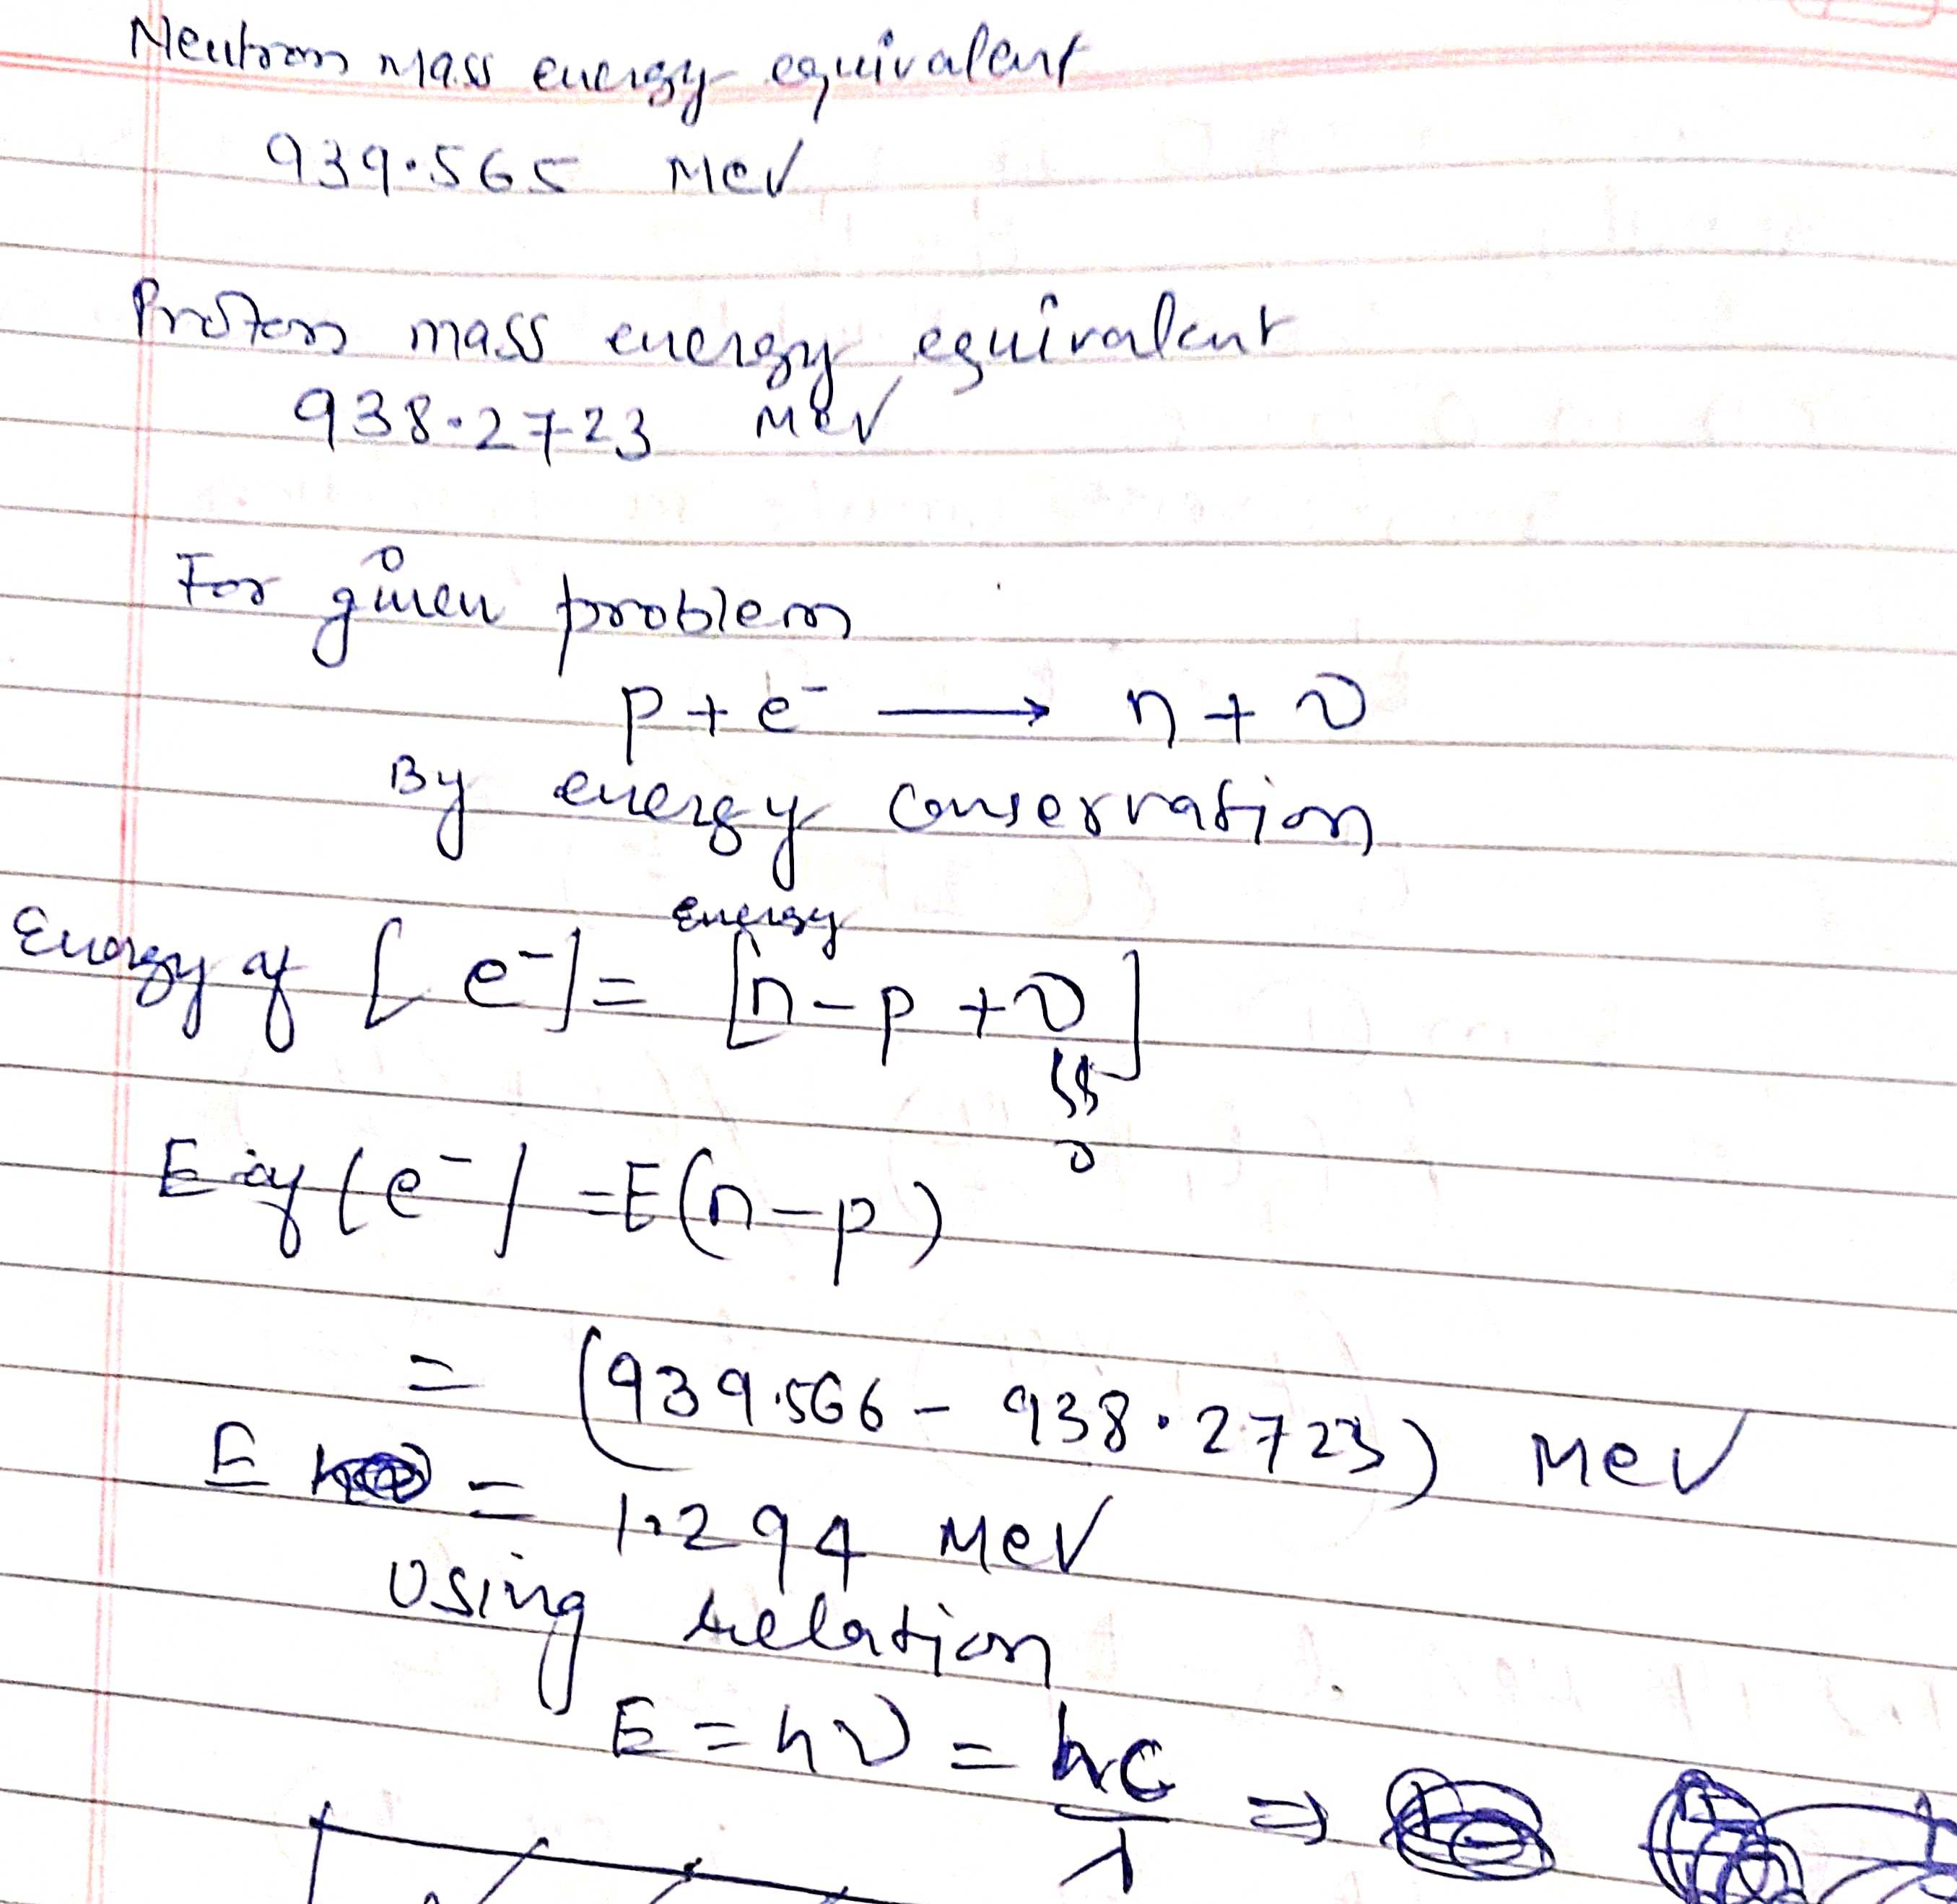 Neutron mass energy equivalent
939.565 MeV
Proton mass energy equivalent
938.2723 MeV
For given problem
p + e⁻ ⟶ n + ν
By energy conservation
Energy of [e⁻] = energy [n - p + ν]
0
E of (e⁻) = E(n - p)
= (939.566 - 938.2723) MeV
E = 1.294 MeV
Using relation
E = hν = hc/λ ⇒